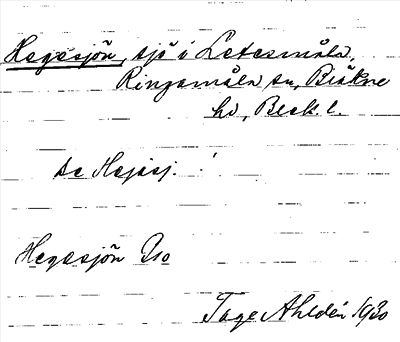 Hegesjön, sjö i Letesmåla,
Ringamåla sn, Bräkne
hd, Blek. l.
se Hejasj.
Hegesjön Gso
Tage Ahldén 1930